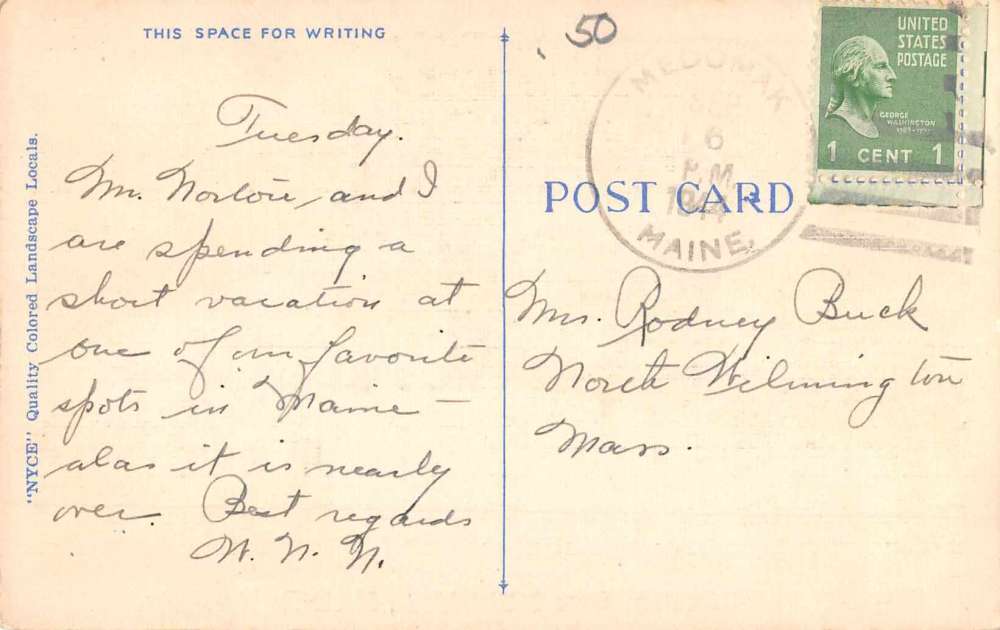 THIS SPACE FOR WRITING
.50
"NYCE" Quality Colored Landscape Locals.
Tuesday.
Mr. Norton and I
are spending a
short vacation at
one of our favorite
spots in Maine —
alas it is nearly
over. Best regards
N. N.
MEDOMAK
6
P M
MAINE.
UNITED
STATES
POSTAGE
GEORGE
WASHINGTON
1 CENT 1
POST CARD
Mrs. Rodney Buck
North Wilmington
Mass.